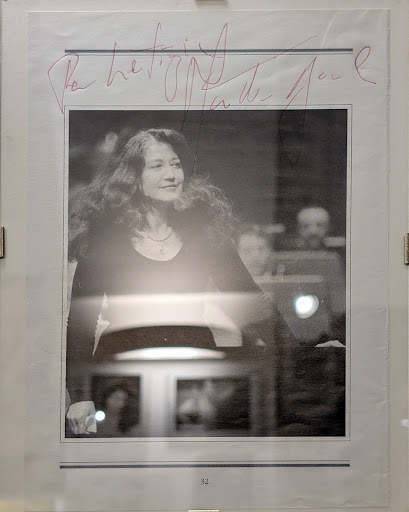 Per Letizia Martha
32